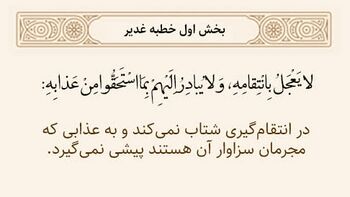 بخش اول خطبه غدیر
لا یَعْجَلُ بِانْتِقامِهِ، وَلایُبادِرُ اِلَیْهِمْ بِمَا اسْتَحَقُّوا مِنْ عَذابِهِ:
در انتقام‌گیری شتاب نمی‌کند و به عذابی که
مجرمان سزاوار آن هستند پیشی نمی‌گیرد.